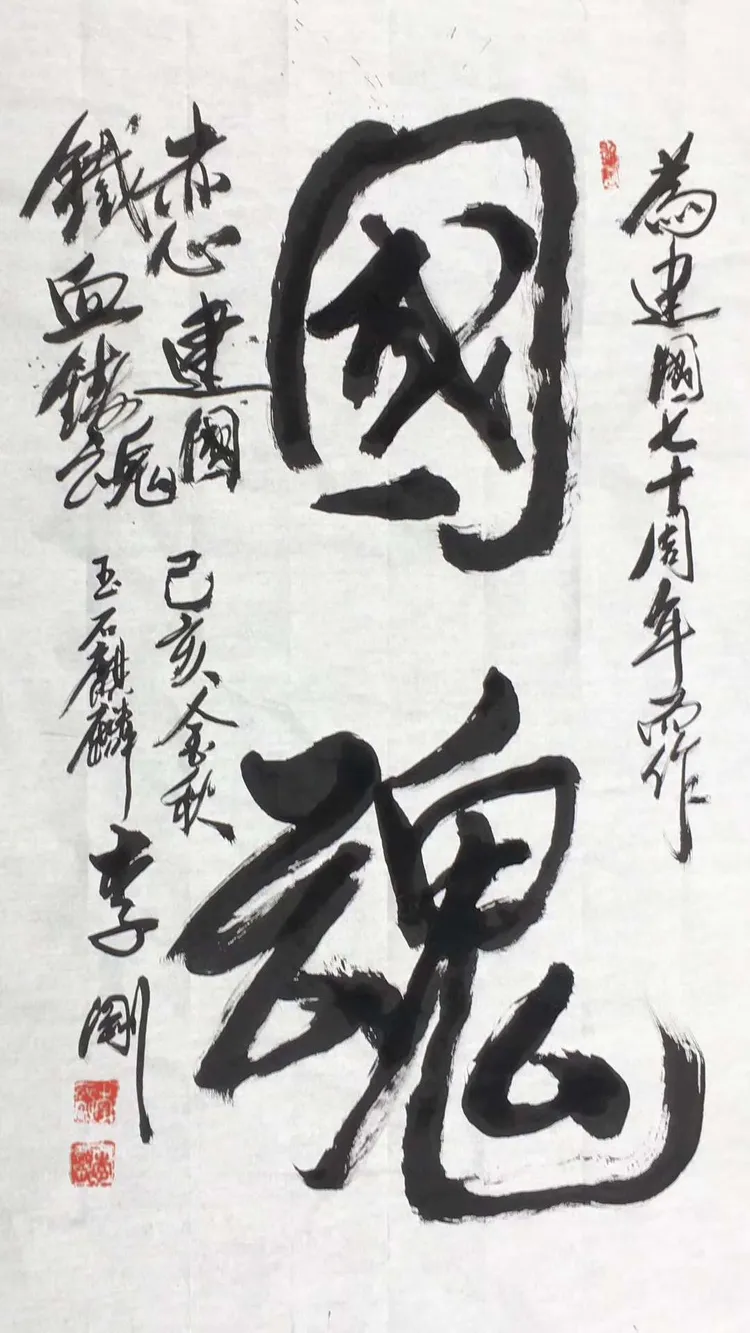 為建國七十周年而作
國魂
赤心建國
鐵血鑄魂
己亥金秋
玉石麒麟
李剛